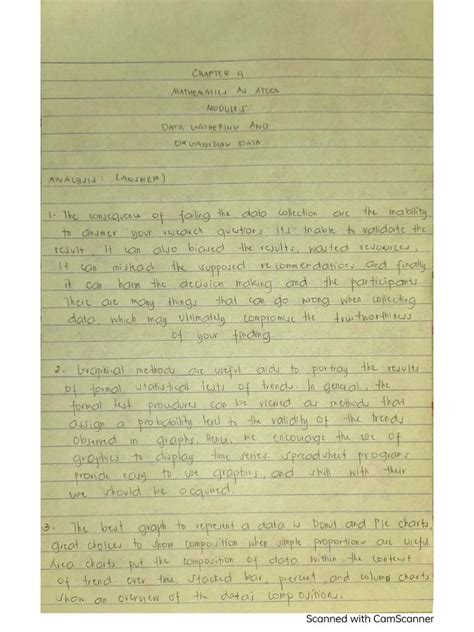 CHAPTER 4
MATHEMATICS AS ATOOL
MODULE 5
DATA GATHERING AND
ORGANIZING DATA
ANALYSIS: (ANSWER)
1. The consequence of failing the data collection are the inability
to answer your research questions, its Inable to validate the
result, It can also biased the results, wasted resources,
It can mislead the supposed recommendations and finally
it can harm the decision making and the participants.
There are many things that can go wrong when collecting
data, which may ultimately compromise the trustworthiness
of your finding
2. Graphical methods are useful aids to portray the results
of formal statistical tests of trends. In general, the
formal test procedures can be viewed as methods that
assign a probability level to the validity of the trends
observed in graphs. Hence, we encourage the use of
graphics to display time series. spreadsheet programs
provide easy to use graphics, and skill with their
use should be acquired.
3. The best graph to represent a data is Donut and Pie charts,
great choices to show composition when simple proportions are useful
Area charts put the composition of data within the context
of trend over time. Stacked bar, percent, and column charts
show an overview of the data's compositions.
Scanned with CamScanner